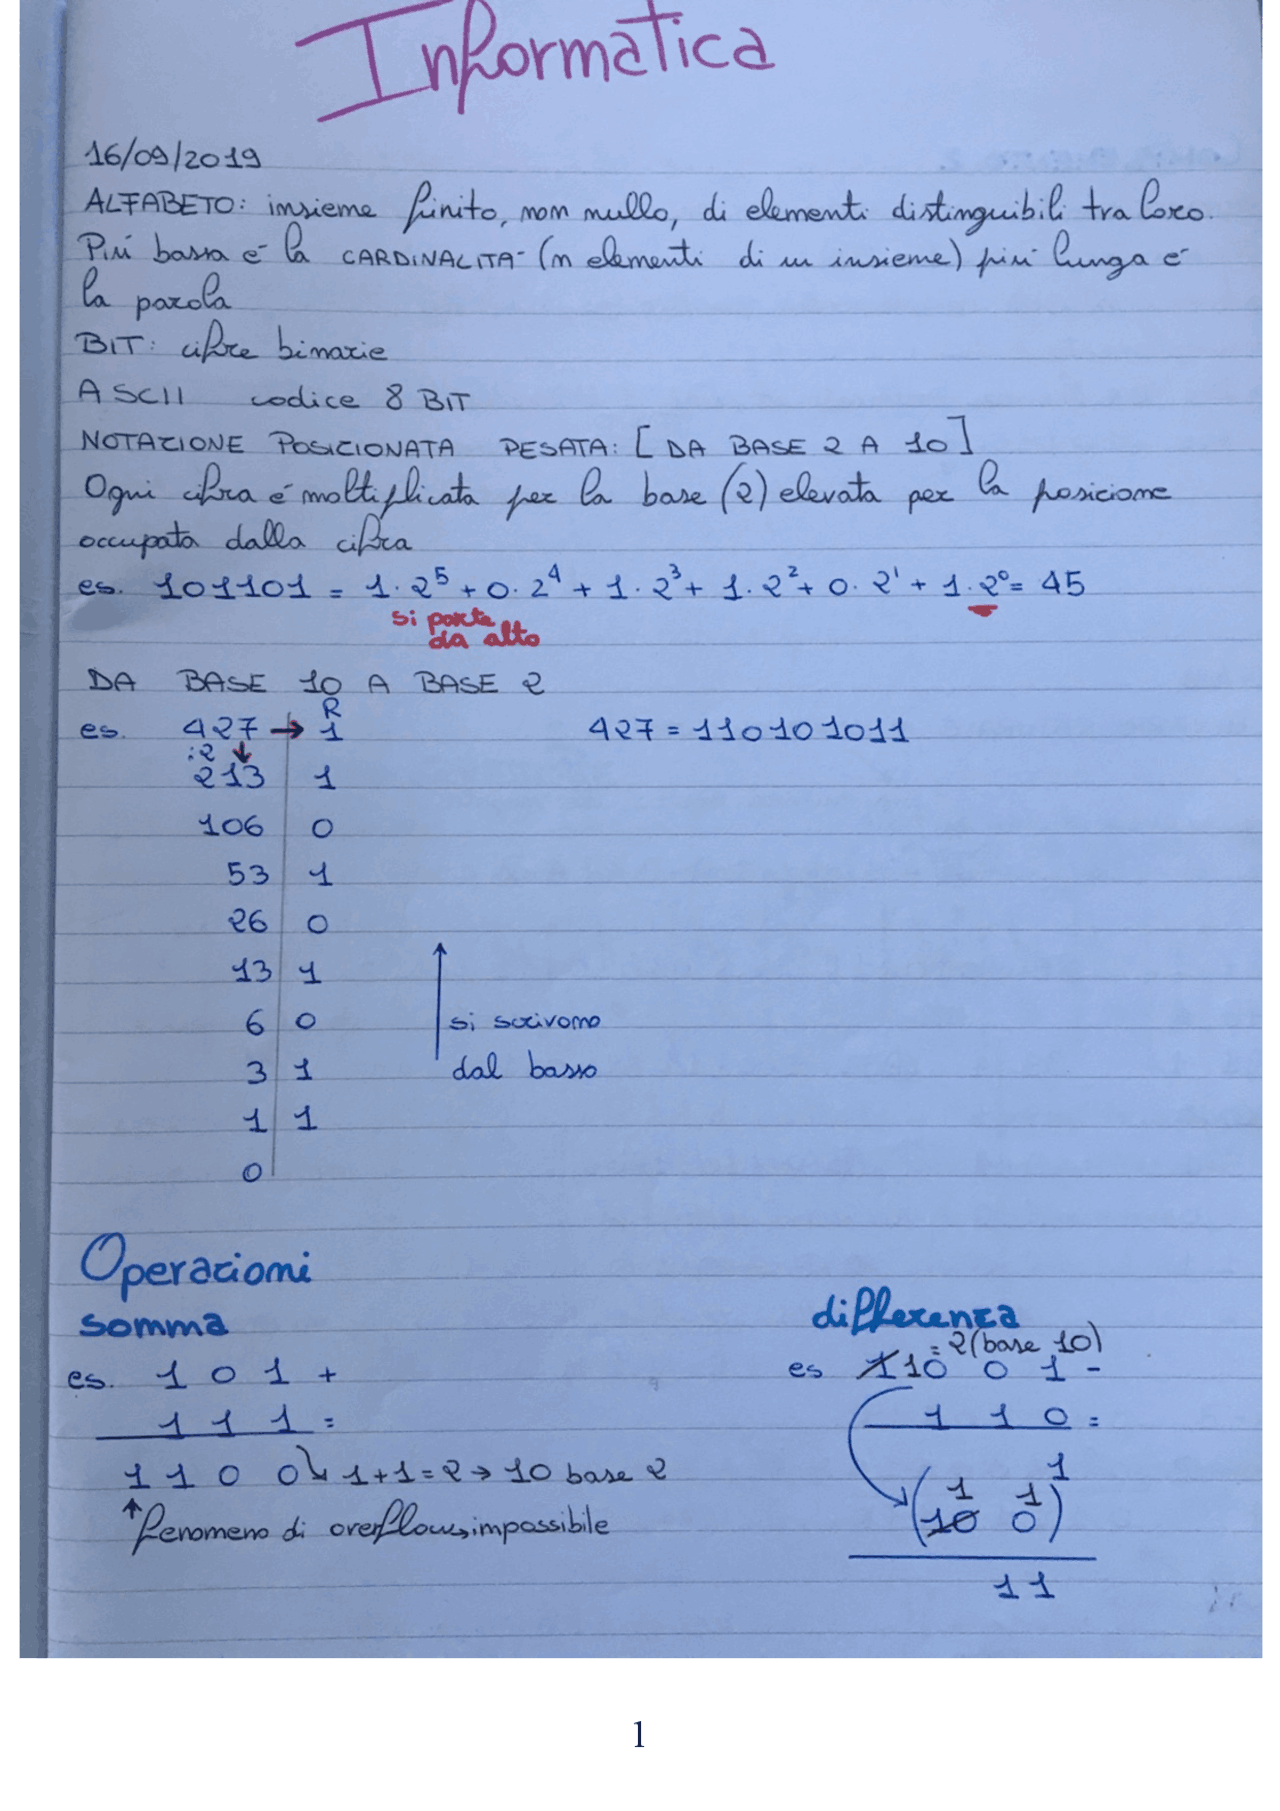 Informatica
16/09/2019
ALFABETO: insieme finito, non nullo, di elementi distinguibili tra loro.
Più bassa è la CARDINALITA' (n elementi di un insieme) più lunga è
la parola
BIT: cifre binarie
ASCII codice 8 BIT
NOTAZIONE POSIZIONATA PESATA: [DA BASE 2 A 10]
Ogni cifra è moltiplicata per la base (2) elevata per la posizione
occupata dalla cifra
es. 101101 = 1·2⁵ + 0·2⁴ + 1·2³ + 1·2² + 0·2¹ + 1·2⁰ = 45
si parte
da alto
DA BASE 10 A BASE 2
R
es. 427 → 1 427 = 110101011
:2 ↓
213 1
106 0
53 1
26 0
13 1
6 0 si scrivono
3 1 dal basso
1 1
0
Operazioni
somma
es. 1 0 1 +
1 1 1 =
1 1 0 0 ↳ 1+1=2 → 10 base 2
↑ fenomeno di overflow, impossibile
differenza
= 2 (base 10)
es 1 10 0 1 -
1 1 0 =
1
1 1
(10 0)
1 1
1